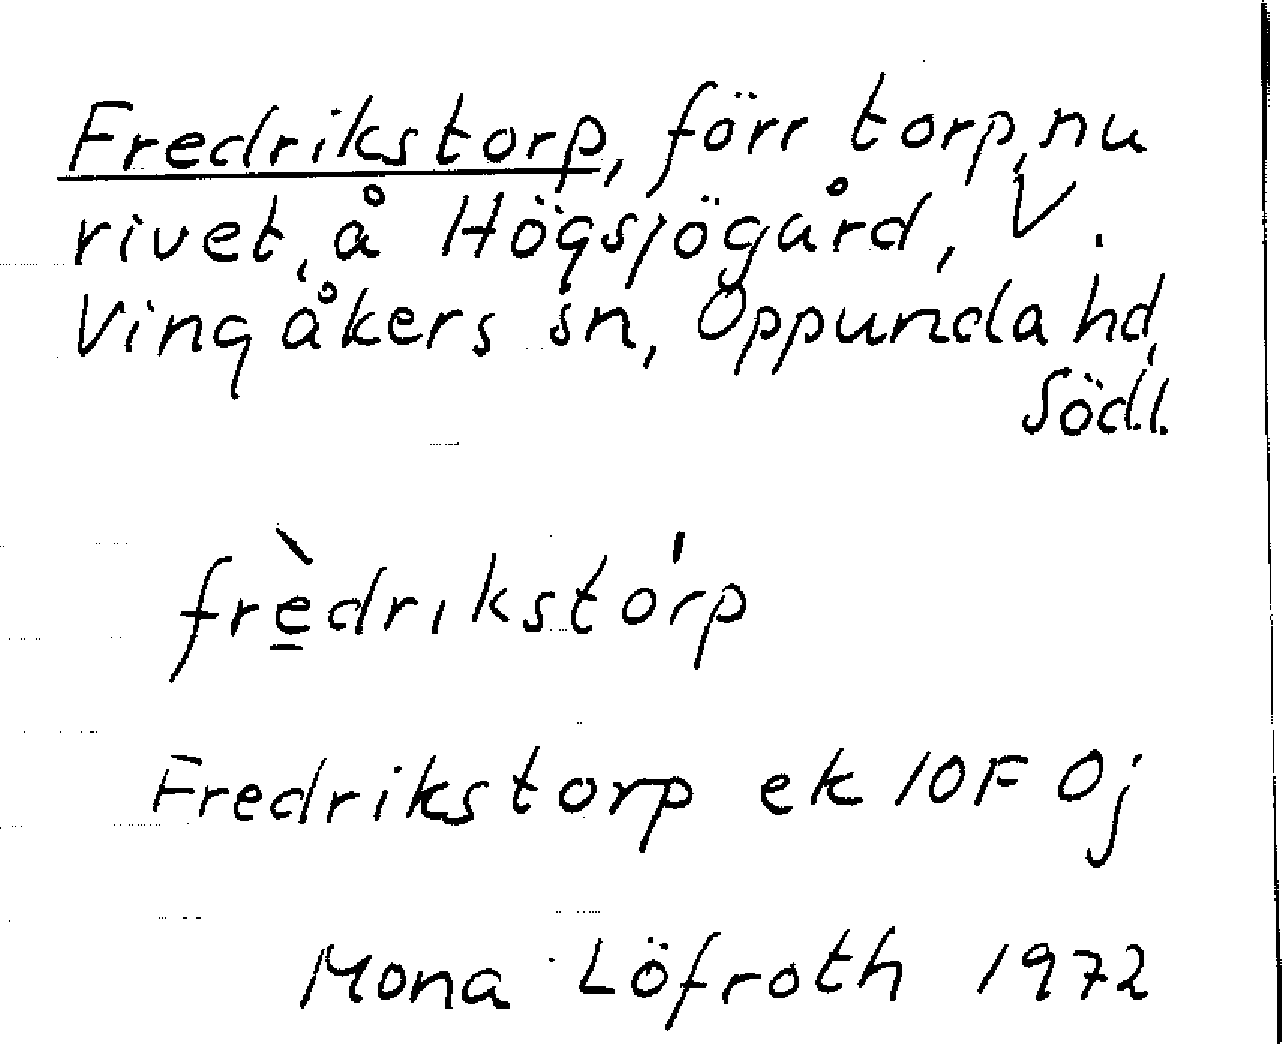 Fredrikstorp, förr torp, nu
rivet, å Högsjögård, V.
Vingåkers sn, Oppunda hd,
Södl.
frèdrikstórp
Fredrikstorp ek 10F 0j
Mona Löfroth 1972